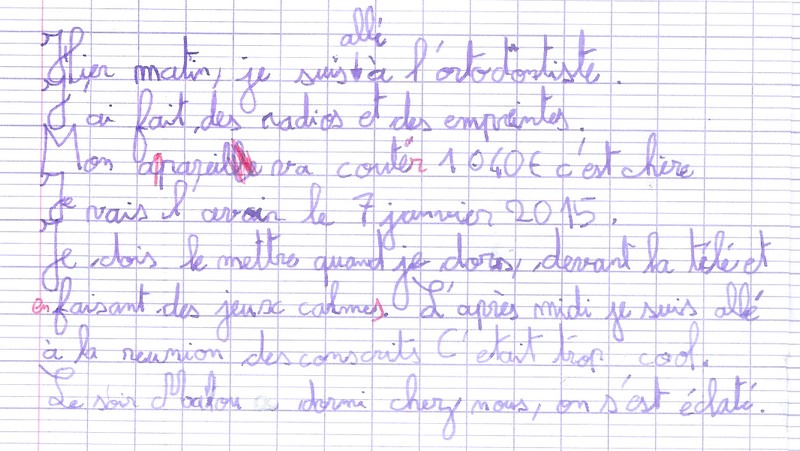 Hier matin, je suis allé à l'ortodontiste.
J'ai fait des radios et des empreintes.
Mon apareil va couter 1 040€ c'est chère
Je vais l'avoir le 7 janvier 2015.
Je dois le mettre quand je dors, devant la télé et
en faisant des jeux calmes. L'après midi je suis allé
à la reunion des conscrits C'etait trop cool.
Le soir a dormi chez nous, on s'est éclaté.